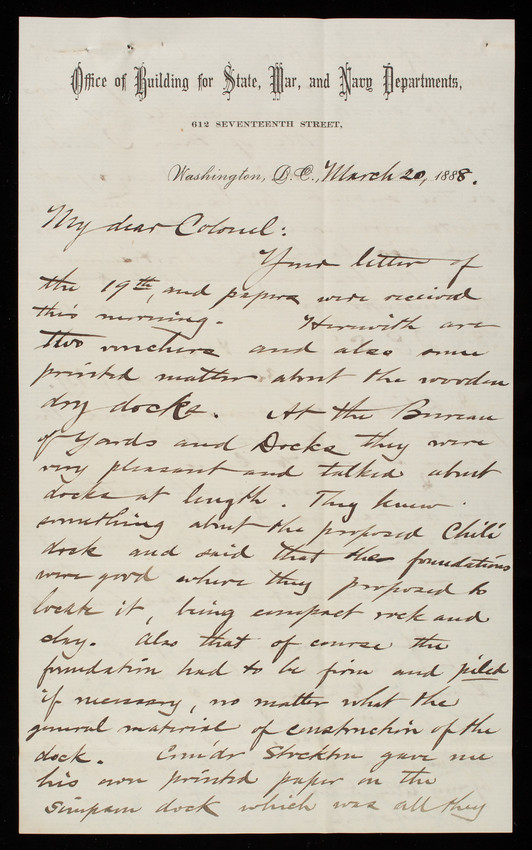 Office of Building for State, War, and Navy Departments,
612 SEVENTEENTH STREET,
Washington, D.C., March 20, 1888.
My dear Colonel:
Your letter of
the 19th, and papers were received
this morning. Herewith are
two vouchers and also some
printed matter about the wooden
dry docks. At the Bureau
of Yards and Docks they were
very pleasant and talked about
docks at length. They knew
something about the proposed Chili
dock and said that the foundations
were good where they proposed to
locate it, being compact rock and
clay. Also that of course the
foundation had to be firm and piled
if necessary, no matter what the
general material of construction of the
dock. Com'dr Stockton gave me
his own printed paper on the
Simpson dock which was all they